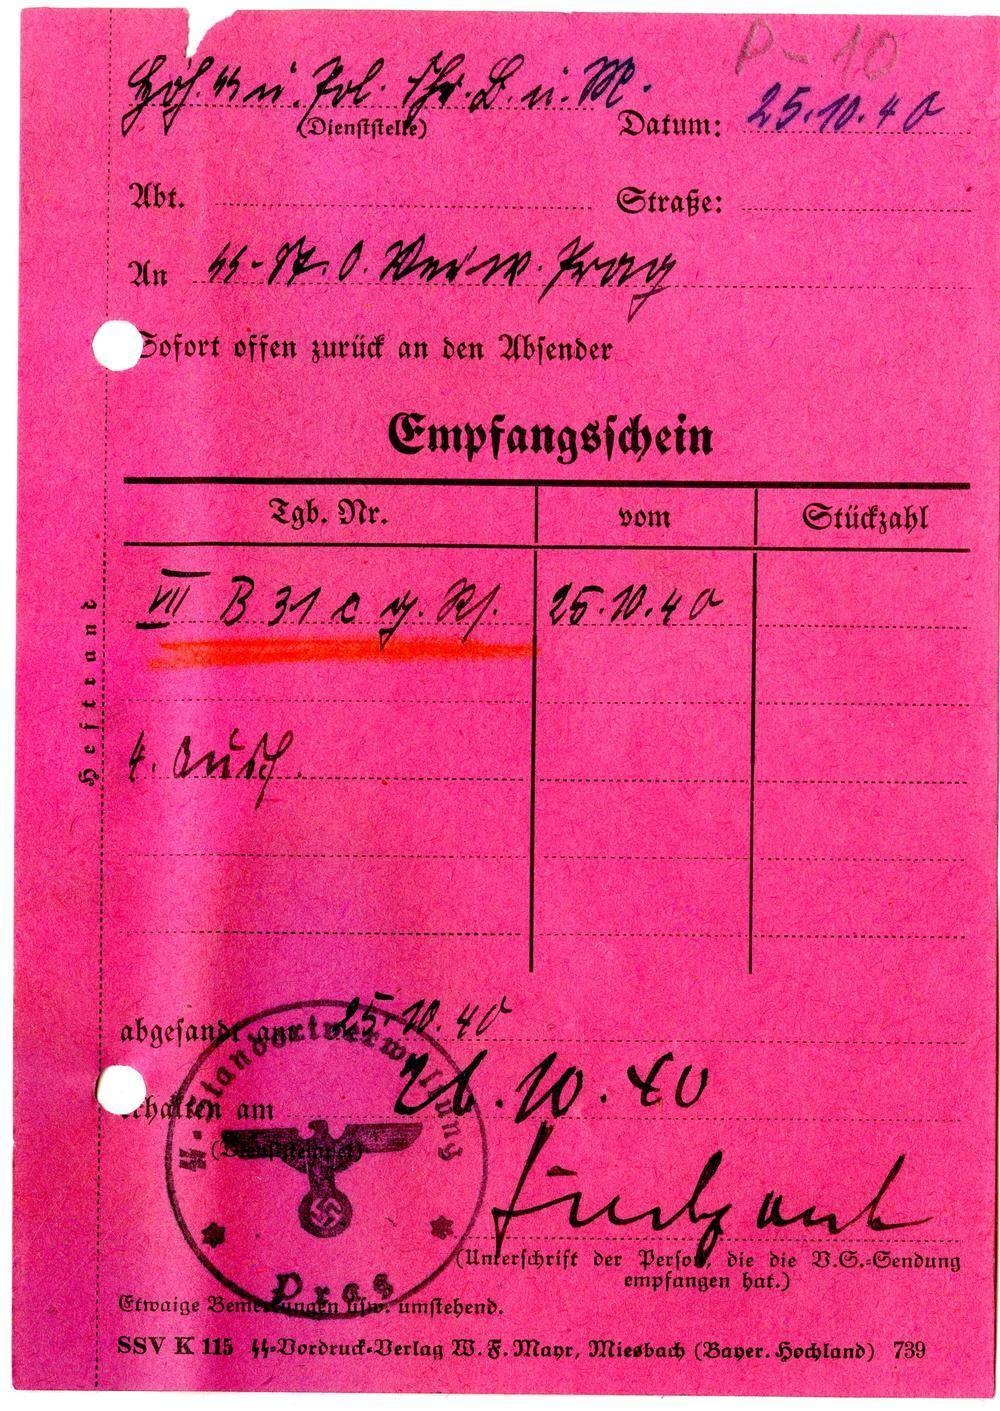 P-10
Höh. SS u. Pol. Fhr. B. u. M.
(Dienststelle) Datum: 25.10.40
Abt. Straße:
An SS-St. O. Verw. Prag
Sofort offen zurück an den Absender
Empfangsschein
Tgb. Nr. vom Stückzahl
VII B 31 c g. Rs. 25.10.40
4. Ausf.
Heftrand
abgesandt am 25.10.40
erhalten am 26.10.40
(Dienststempel)
SS-Standortverwaltung
Prag
(Unterschrift der Person, die die V.S.-Sendung
empfangen hat.)
Etwaige Bemerkungen usw. umstehend.
SSV K 115 SS-Vordruck-Verlag W. F. Mayr, Miesbach (Bayer. Hochland) 739